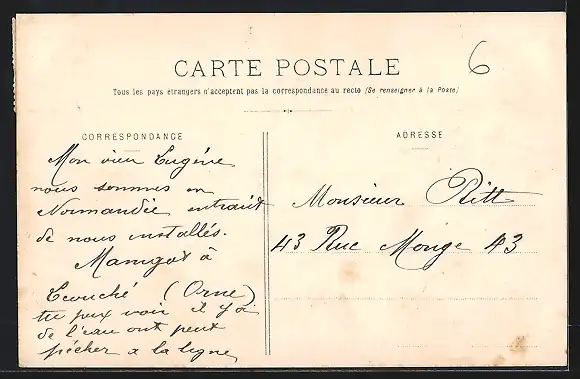 6
CARTE POSTALE
Tous les pays étrangers n'acceptent pas la correspondance au recto (Se renseigner à la Poste)
CORRESPONDANCE
Mon vieux Eugène
nous sommes en
Normandie entrait
de nous installés.
à
Ecouché (Orne)
tu peux voir il y a
de l'eau ont peut
pécher a la ligne
ADRESSE
Monsieur Ritt
43 Rue Monge 43